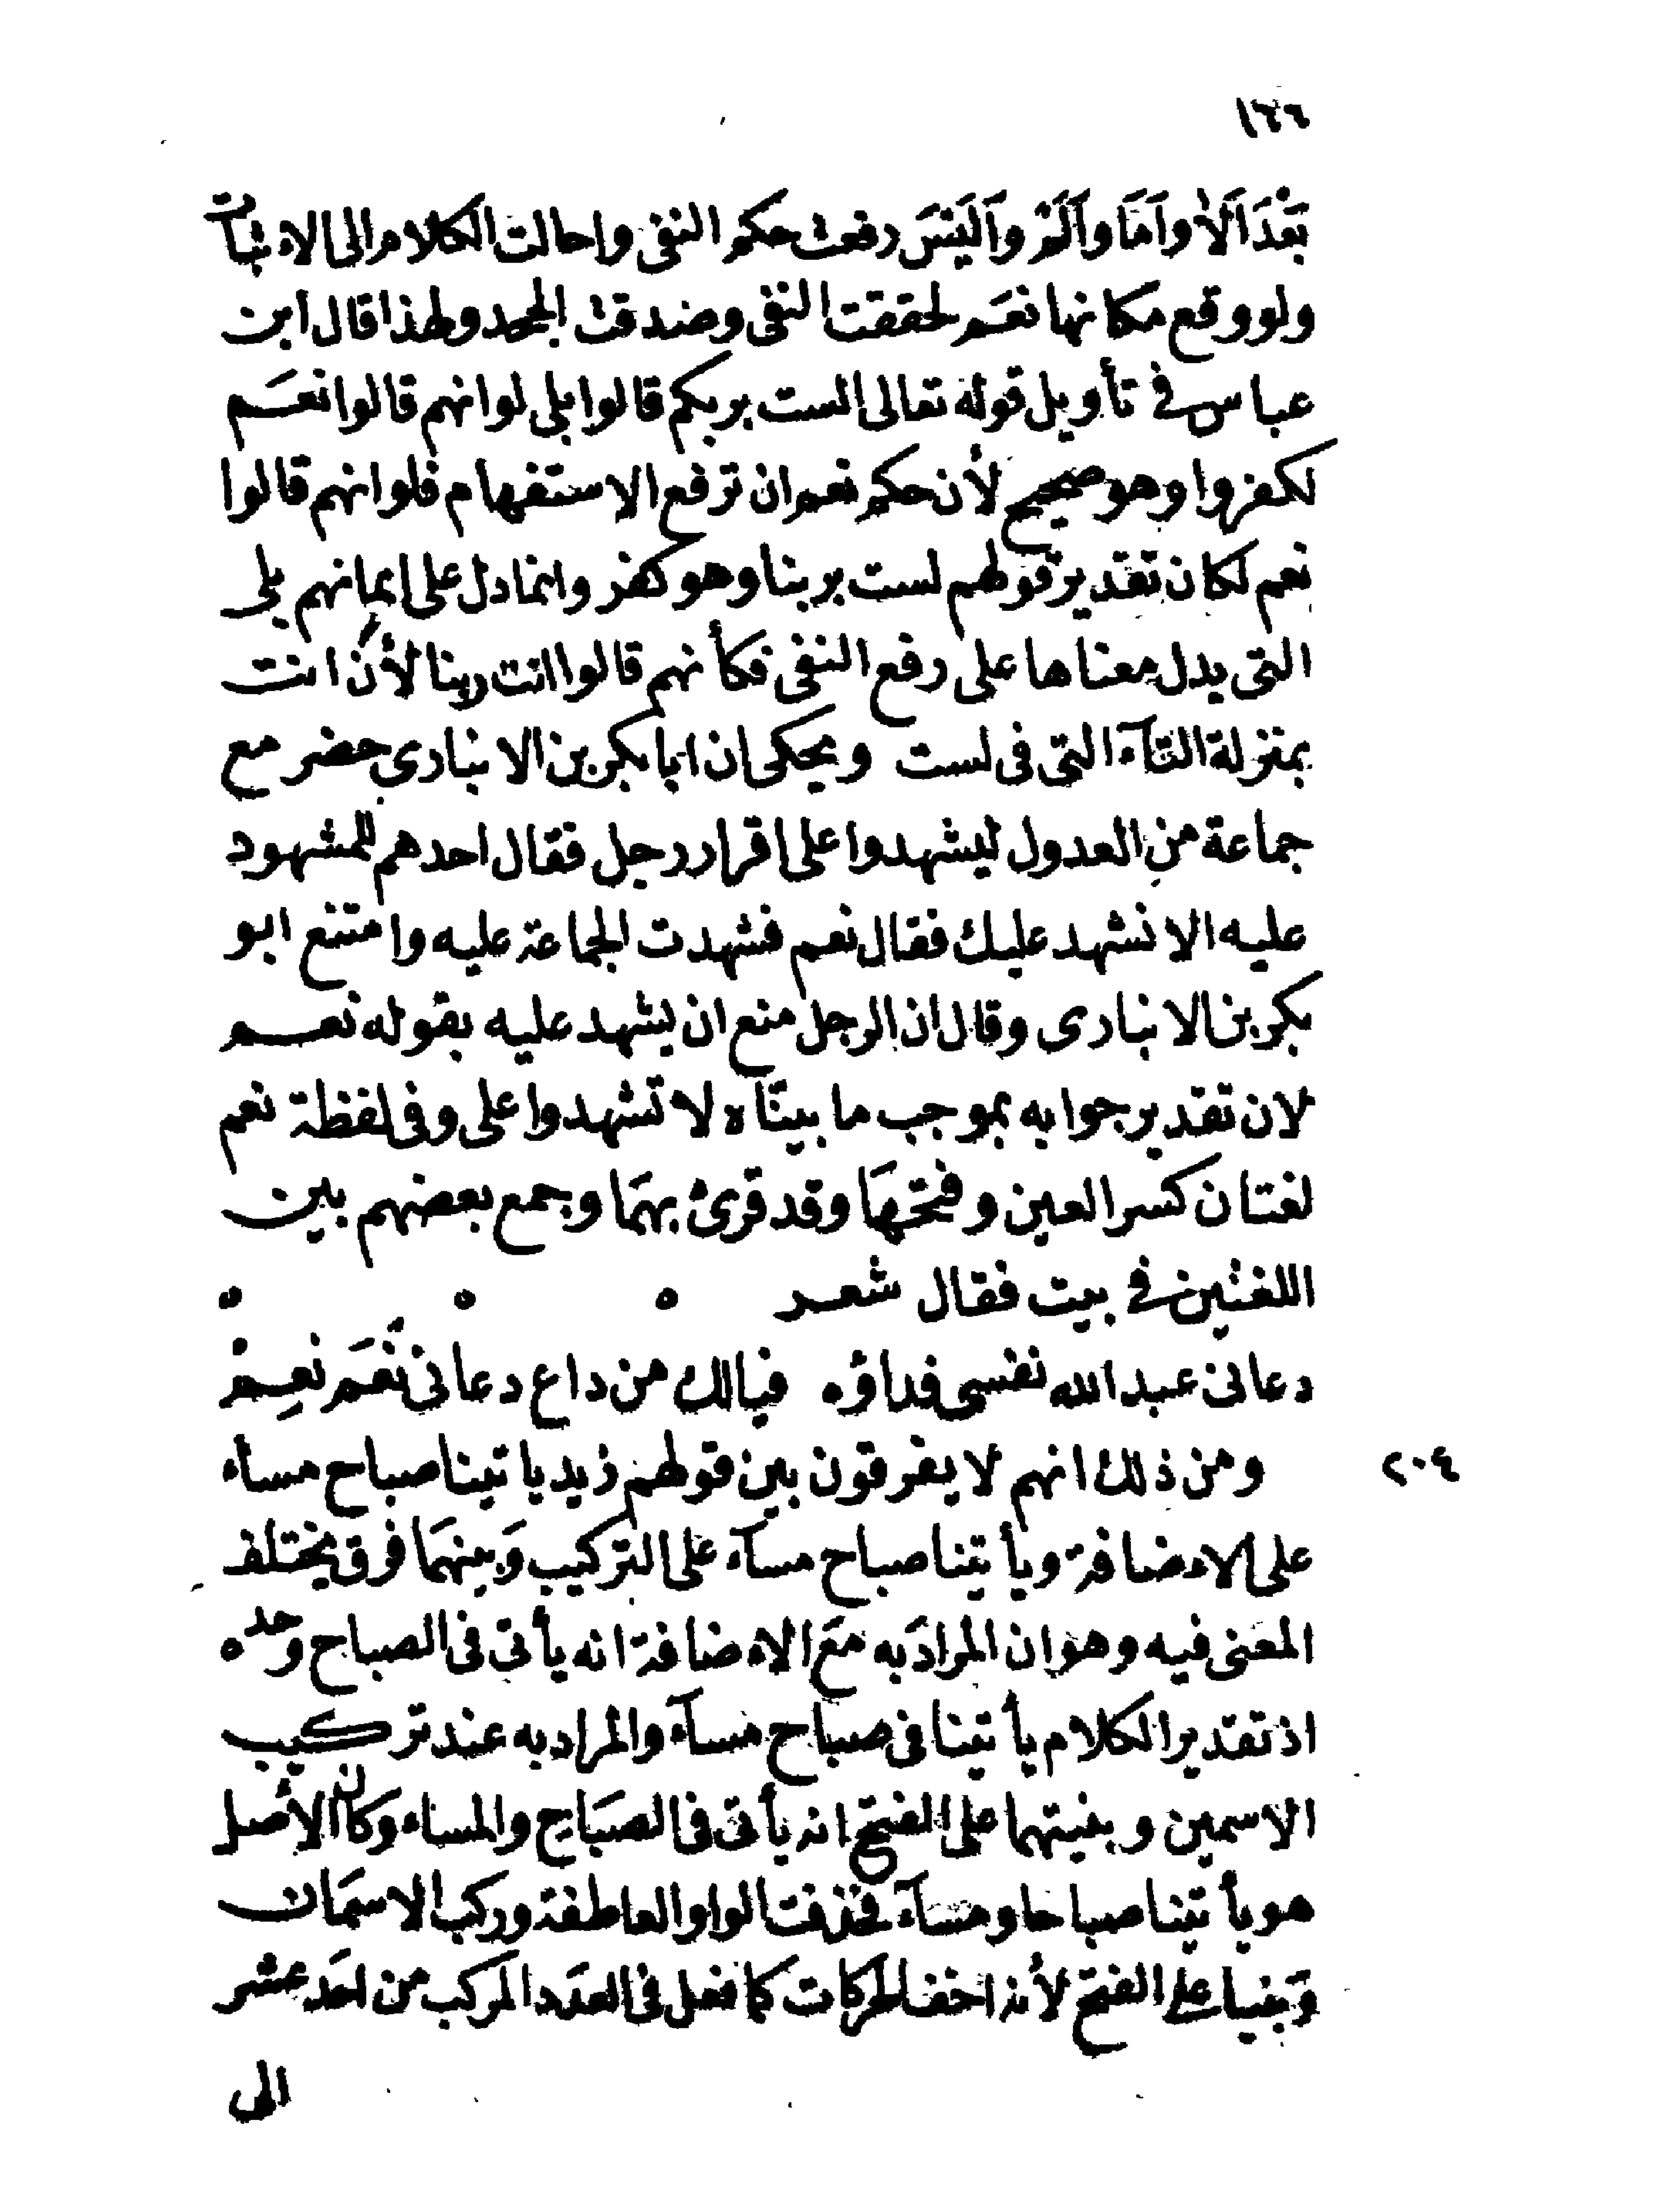 ١٢٦
بَعْدَ اَلَاْ وَاَمَا وَاَلَمْ وَاَلَيْسَ رفعت حكم النفى واحالت الكلام الى الاثبات
ولو وقع مكانها نعَم لحققت النفى وصدقت الجحد ولهذا قال ابن
عباس فى تأويل قوله تعالى الست بربكم قالوا بلى لو انهم قالوا نعَم
لكفروا وهو صحيح لأن حكم نعم ان ترفع الاستفهام فلو انهم قالوا
نعم لكان تقدير قولهم لست بربنا وهو كفر وانما دل على ايمانهم بلى
التى يدل معناها على رفع النفى فكأنهم قالوا انت ربنا لأن انت
بمنزلة التآء التى فى لست ويحكى ان ابا بكر بن الانبارى حضر مع
جماعة من العدول ليشهدوا على اقرار رجل فقال احدهم للمشهود
عليه الا نشهد عليك فقال نعم فشهدت الجماعة عليه وامتنع ابو
بكر بن الانبارى وقال ان الرجل منع ان يشهد عليه بقوله نعم
لان تقدير جوابه بموجب ما بيناه لا تشهدوا على وفى لفظة نعم
لغتان كسر العين وفتحهَا وقد قرئ بهمَا وجمع بعضهم بين
اللغتين فى بيت فقال شعر
دعانى عبد الله نفسى فداؤه فيالك من داع دعانى نَعَم نعِمْ
٢٠٤ ومن ذلك انهم لا يفرقون بين قولهم زيد ياتينا صباح مساء
على الاضافة ويأتينا صباح مسآء على التركيب وَبينهمَا فرق يختلف
المعنى فيه وهو ان المرادَ به معَ الاضافة انه يأتى فى الصباح وحده
اذ تقدير الكلام يأتينا فى صباح مسآء والمراد به عند تركيب
الاسمين وبنيتهما على الفتح انه يأتى فى الصبَاح والمساء وكان الأصل
هو يأتينا صباحا ومسآء فحذفت الواو العاطفة وركب الاسمَان
وَبنيا على الفتح لأنه اخف الحركات كما فعل فى العدَد المركب من احَد عشر
الى